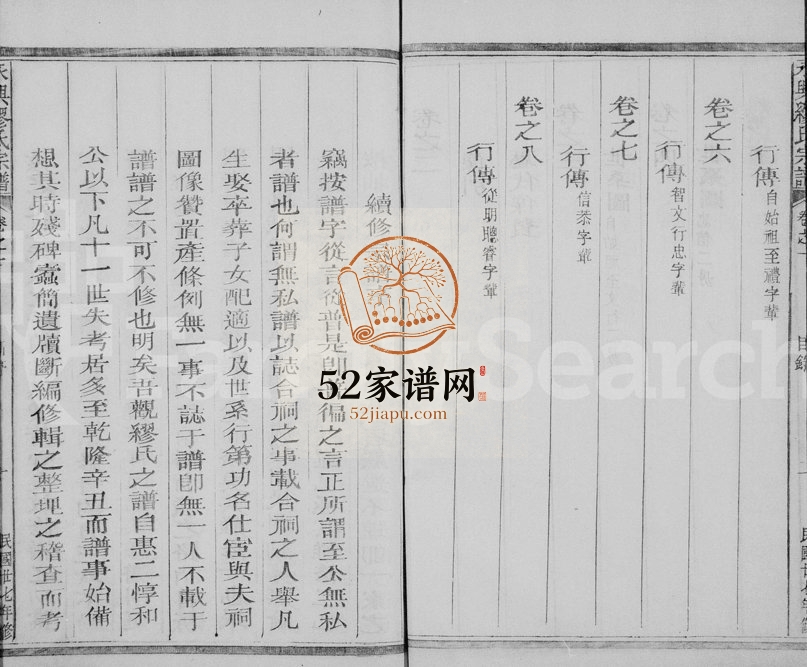 卷之六
行傳自始祖至禮字輩
行傳智文行忠字輩
卷之七
行傳信恭字輩
卷之八
行傳從明聰睿字輩
續修
竊按譜字從言從普是即普徧之言正所謂至公無私
者譜也何謂無私譜以誌合祠之事載合祠之人舉凡
生娶卒葬子女配適以及世系行第功名仕宦與夫祠
圖像贊置產條例無一事不誌于譜卽無一人不載于
譜譜之不可不修也明矣吾觀繆氏之譜自惠二惇和
公以下凡十一世失考居多至乾隆辛丑而譜事始備
想其時殘碑蠹簡遺牘斷編修輯之整理之稽查而考
興繆氏宗譜
卷之
民國廿七年修
52家谱网
52jiapu.com
Search